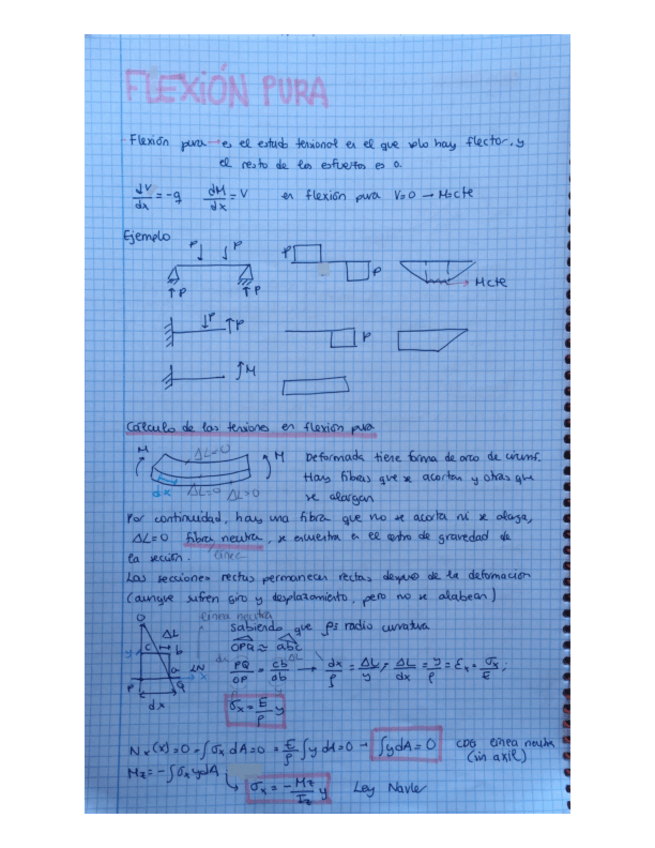 FLEXIÓN PURA
Flexión pura → es el estado tensional en el que solo hay flector, y
el resto de los esfuerzos es 0.
dV/dx = -q   dM/dx = V   en flexión pura V=0 → M=cte
Ejemplo
P P P P M cte
P P
P P P
M
Cálculo de las tensiones en flexión pura
M ΔL<0 M Deformada tiene forma de arco de circunf.
Hay fibras que se acortan y otras que
dx ΔL=0 ΔL>0 se alargan
Por continuidad, hay una fibra que no se acorta ni se alarga,
ΔL=0 fibra neutra, se encuentra en el centro de gravedad de
la sección. línea
Las secciones rectas permanecen rectas después de la deformación
(aunque sufren giro y desplazamiento, pero no se alabean)
O línea neutra
ΔL Sabiendo que ρ radio curvatura
y c b OPQ ≈ abc
a LN x PQ/OP = cb/ab → dx/ρ = ΔL/y → ΔL/dx = y/ρ = εx = σx/E ;
P Q
dx σx = E/ρ y
Nx(x)=0 = ∫σx dA=0 = E/ρ ∫y dA=0 → ∫ydA=0 CDG línea neutra
(sin axil)
Mz = -∫σx ydA
σx = -Mz/Iz y Ley Navier